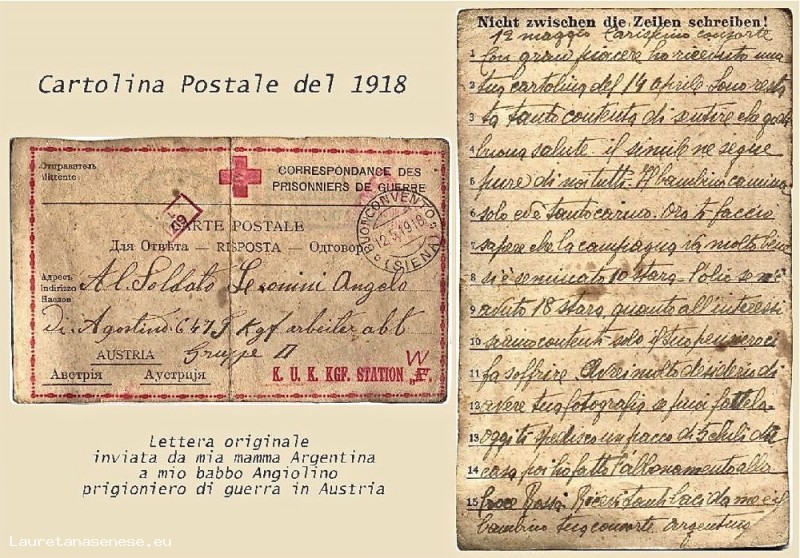 Cartolina Postale del 1918
Отправитель
Mittente
CORRESPONDANCE DES
PRISONNIERS DE GUERRE
CARTE POSTALE
BUONCONVENTO
(SIENA)
Для Отвѣта — RISPOSTA — Одговор
Адресъ
Indirizzo
Наслов
Al Soldato Leonini Angelo
di Agostino 647 J. Kgf. arbeiter abt
Gruppe II
AUSTRIA
Австрія Аустрија
W
K. U. K. KGF. STATION „F“.
Lettera originale
inviata da mia mamma Argentina
a mio babbo Angiolino
prigioniero di guerra in Austria
Nicht zwischen die Zeilen schreiben!
12 maggio Carissimo consorte
1 Con gran piacere ho ricevuto una
2 tua cartolina del 19 aprile Sono resta
3 ta tanto contenta di sentire che godi
4 buona salute il simile ne segue
5 pure di noi tutti. Il bambino camina
6 solo ed è tanto carino. Ora ti faccio
7 sapere che la campagna va molto bene
8 si è seminato 10 stara l'olio se n'è
9 avuto 18 stara, quanto all'interessi
10 siamo contenti solo il tuo pensiero ci
11 fa soffrire. Avrei molto desiderio di
12 avere tua fotografia se puoi fattela.
13 Oggi ti spedisco un pacco di 5 chili da
14 casa poi ho fatto l'abbonamento alla
15 Croce Rossa Ricevi tanti baci da me e il
bambino tua consorte Argentina
Lauretanasenese.eu